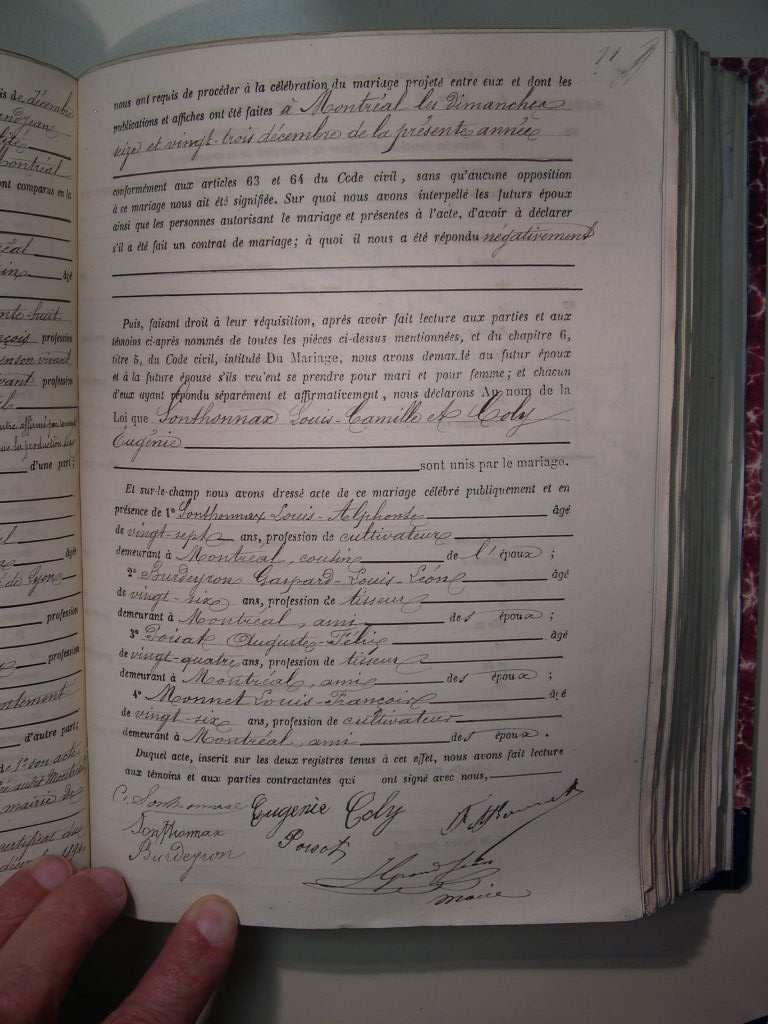 is de décembre
Montréal
ont comparus en la
âgé
profession
profession
d'une part;
âgé
de Lyon
profession
profession
d'autre part;
mairie de
71
nous ont requis de procéder à la célébration du mariage projeté entre eux et dont les
publications et affiches ont été faites à Montréal les dimanches
seize et vingt-trois décembre de la présente année
conformément aux articles 63 et 64 du Code civil, sans qu'aucune opposition
à ce mariage nous ait été signifiée. Sur quoi nous avons interpellé les futurs époux
ainsi que les personnes autorisant le mariage et présentes à l'acte, d'avoir à déclarer
s'il a été fait un contrat de mariage; à quoi il nous a été répondu négativement
Puis, faisant droit à leur réquisition, après avoir fait lecture aux parties et aux
témoins ci-après nommés de toutes les pièces ci-dessus mentionnées, et du chapitre 6,
titre 5, du Code civil, intitulé Du Mariage, nous avons demandé au futur époux
et à la future épouse s'ils veulent se prendre pour mari et pour femme; et chacun
d'eux ayant répondu séparément et affirmativement, nous déclarons Au nom de la
Loi que Sonthonnax Louis-Camille et Coly
Eugénie
sont unis par le mariage.
Et sur-le-champ nous avons dressé acte de ce mariage célébré publiquement et en
présence de 1° Sonthonnax Louis-Alphonse âgé
de vingt-sept ans, profession de cultivateur
demeurant à Montréal, cousin de l'époux;
2° Burdeyron Gaspard-Louis-Léon âgé
de vingt-six ans, profession de tisseur
demeurant à Montréal, ami des époux;
3° Poisat Auguste-Félix âgé
de vingt-quatre ans, profession de tisseur
demeurant à Montréal, ami des époux;
4° Monnet Louis-François âgé
de vingt-six ans, profession de cultivateur
demeurant à Montréal, ami des époux.
Duquel acte, inscrit sur les deux registres tenus à cet effet, nous avons fait lecture
aux témoins et aux parties contractantes qui ont signé avec nous,
C. Sonthonnax Eugénie Coly
Sonthonnax Poisat
Burdeyron
maire